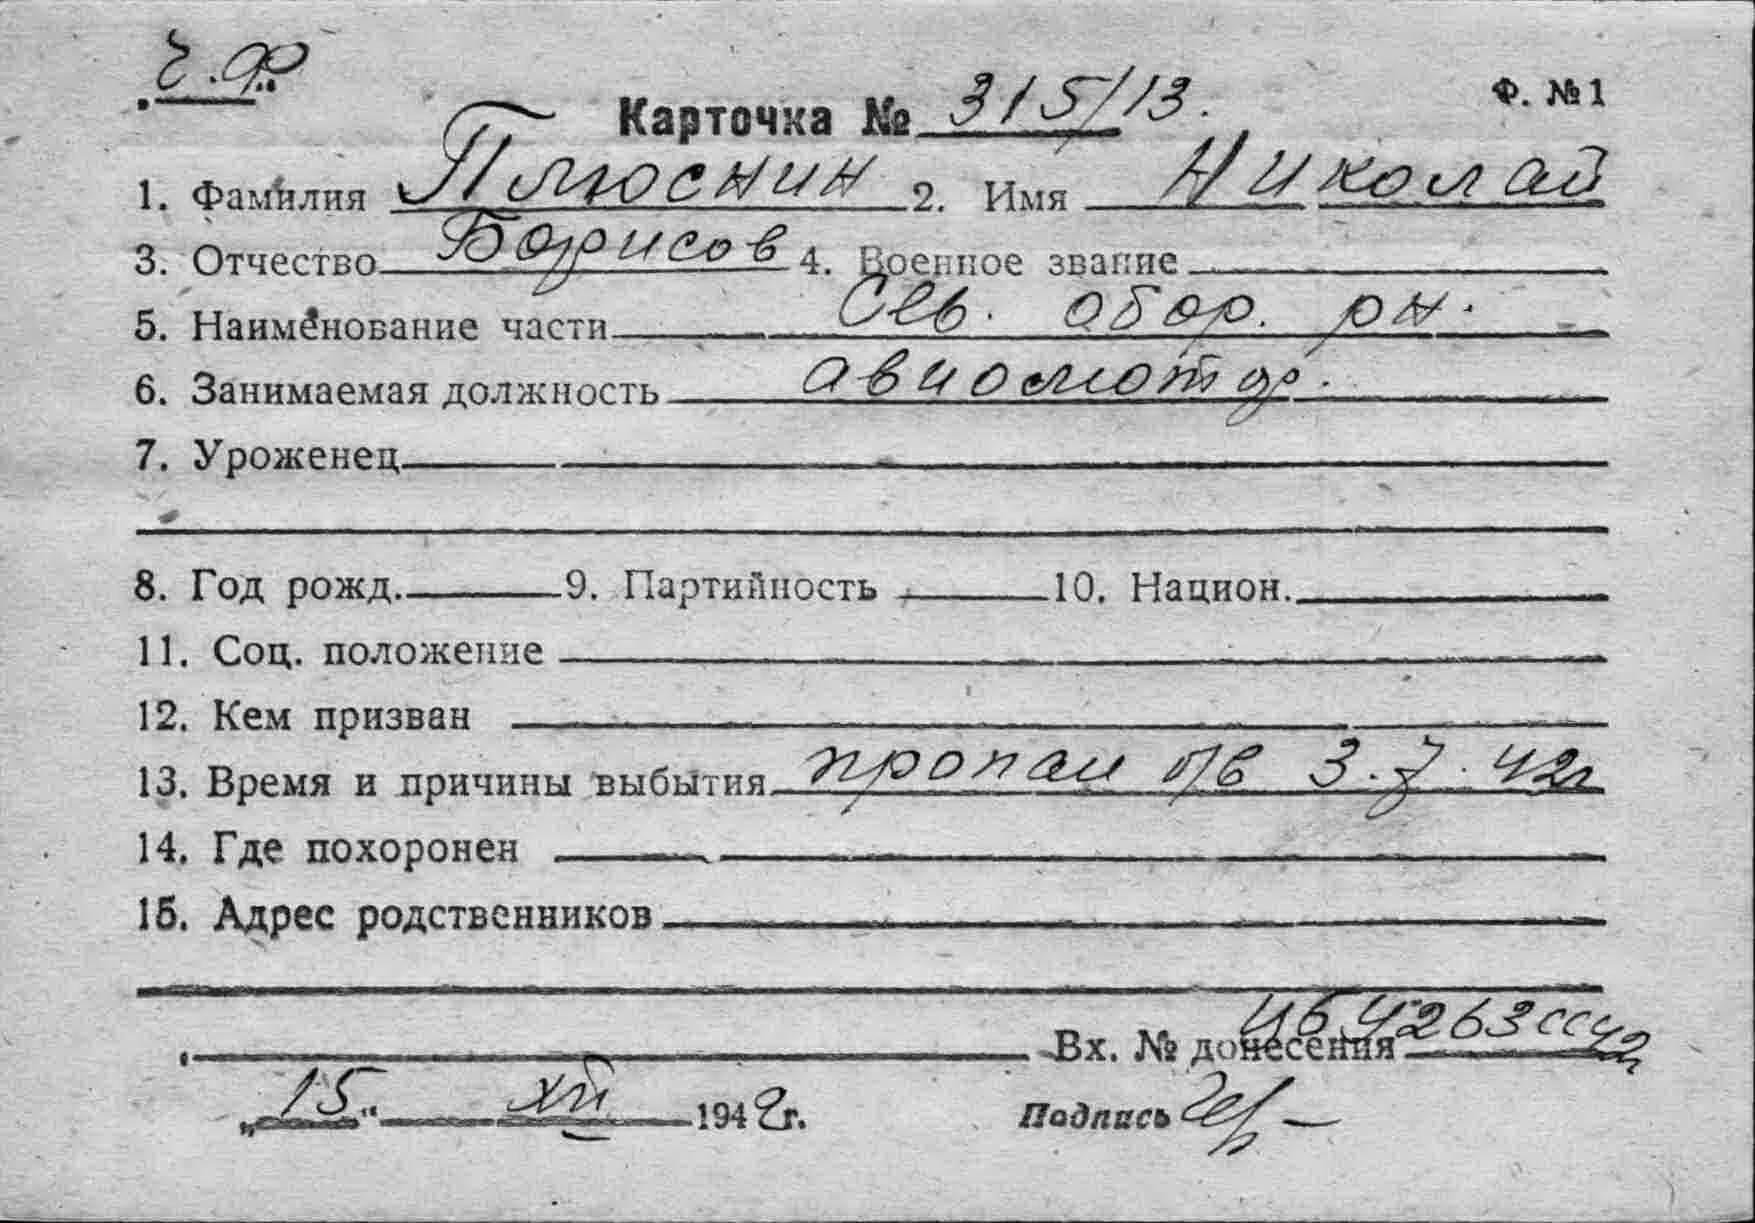 Ч.Ф.
Карточка № 315/13. Ф. №1
1. Фамилия Плюснин 2. Имя Николай
3. Отчество Борисов 4. Военное звание
5. Наименование части Сев. обор. рн.
6. Занимаемая должность авиомотор.
7. Уроженец
8. Год рожд. 9. Партийность 10. Национ.
11. Соц. положение
12. Кем призван
13. Время и причины выбытия пропал б/в 3.7.42г
14. Где похоронен
15. Адрес родственников
Вх. № донесения 4263сс42г
„15“ XII 1942г. Подпись